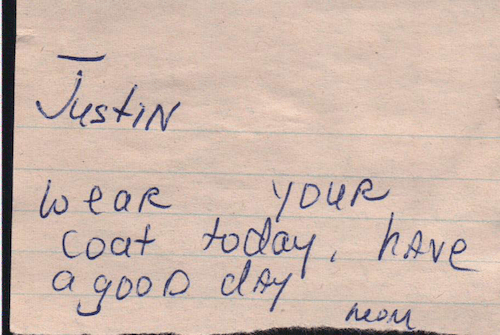 Justin
wear your
coat today, have
a good day
mom